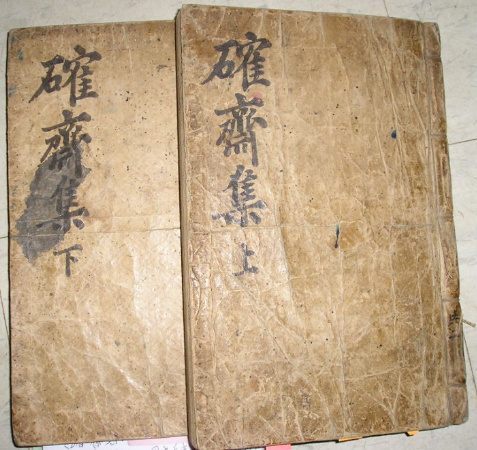 確齋集上
確齋集下